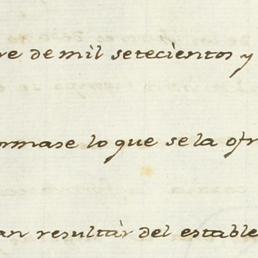 re de mil setecientos y
ormase lo que se la ofr
an resultàr del estable